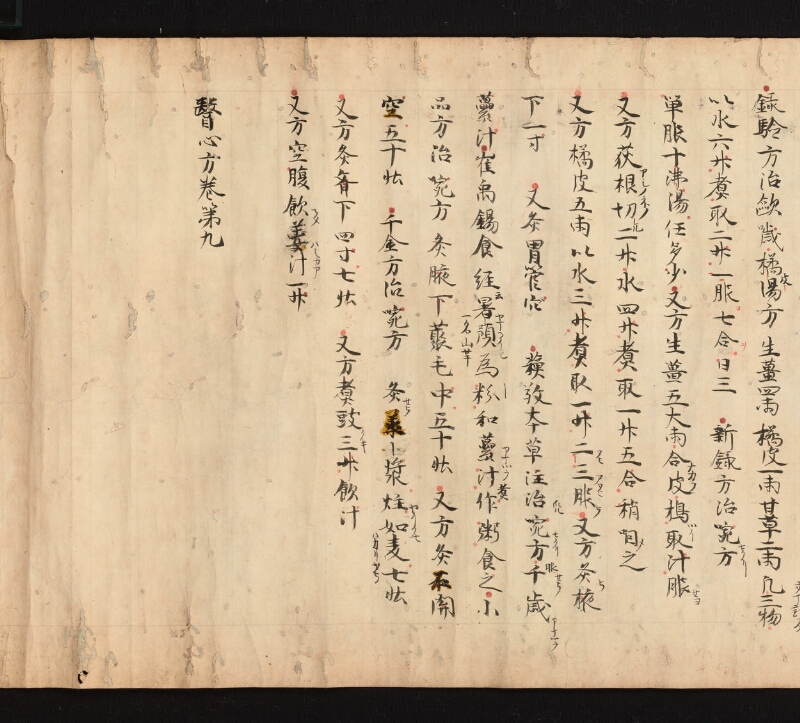 録驗方治歐噦橘湯方 生薑四兩 橘皮一兩 甘草二兩 凡三物
以水六升煮取二升一服七合日三 新録方治噦方
單服十沸湯任多少又方生薑五大兩合皮搗取汁服
又方荻根切二升水四升煮取一升五合稍〻之
又方橘皮五兩以水三升煮取一升二三服又方灸腋
下一寸 又灸胃管穴 蘓敬本草注治噦方千歳
蘡汁崔禹錫食經云署預為粉和蘡汁作粥食之小
一名山芋
品方治噦方 灸腋下聚毛中五十壮 又方灸石關
空五十壮 千金方治噦方 灸承漿炷如麦七壮
又方灸齊下四寸七壮 又方煮豉三升飲汁
又方空腹飲薑汁一升
醫心方卷第九